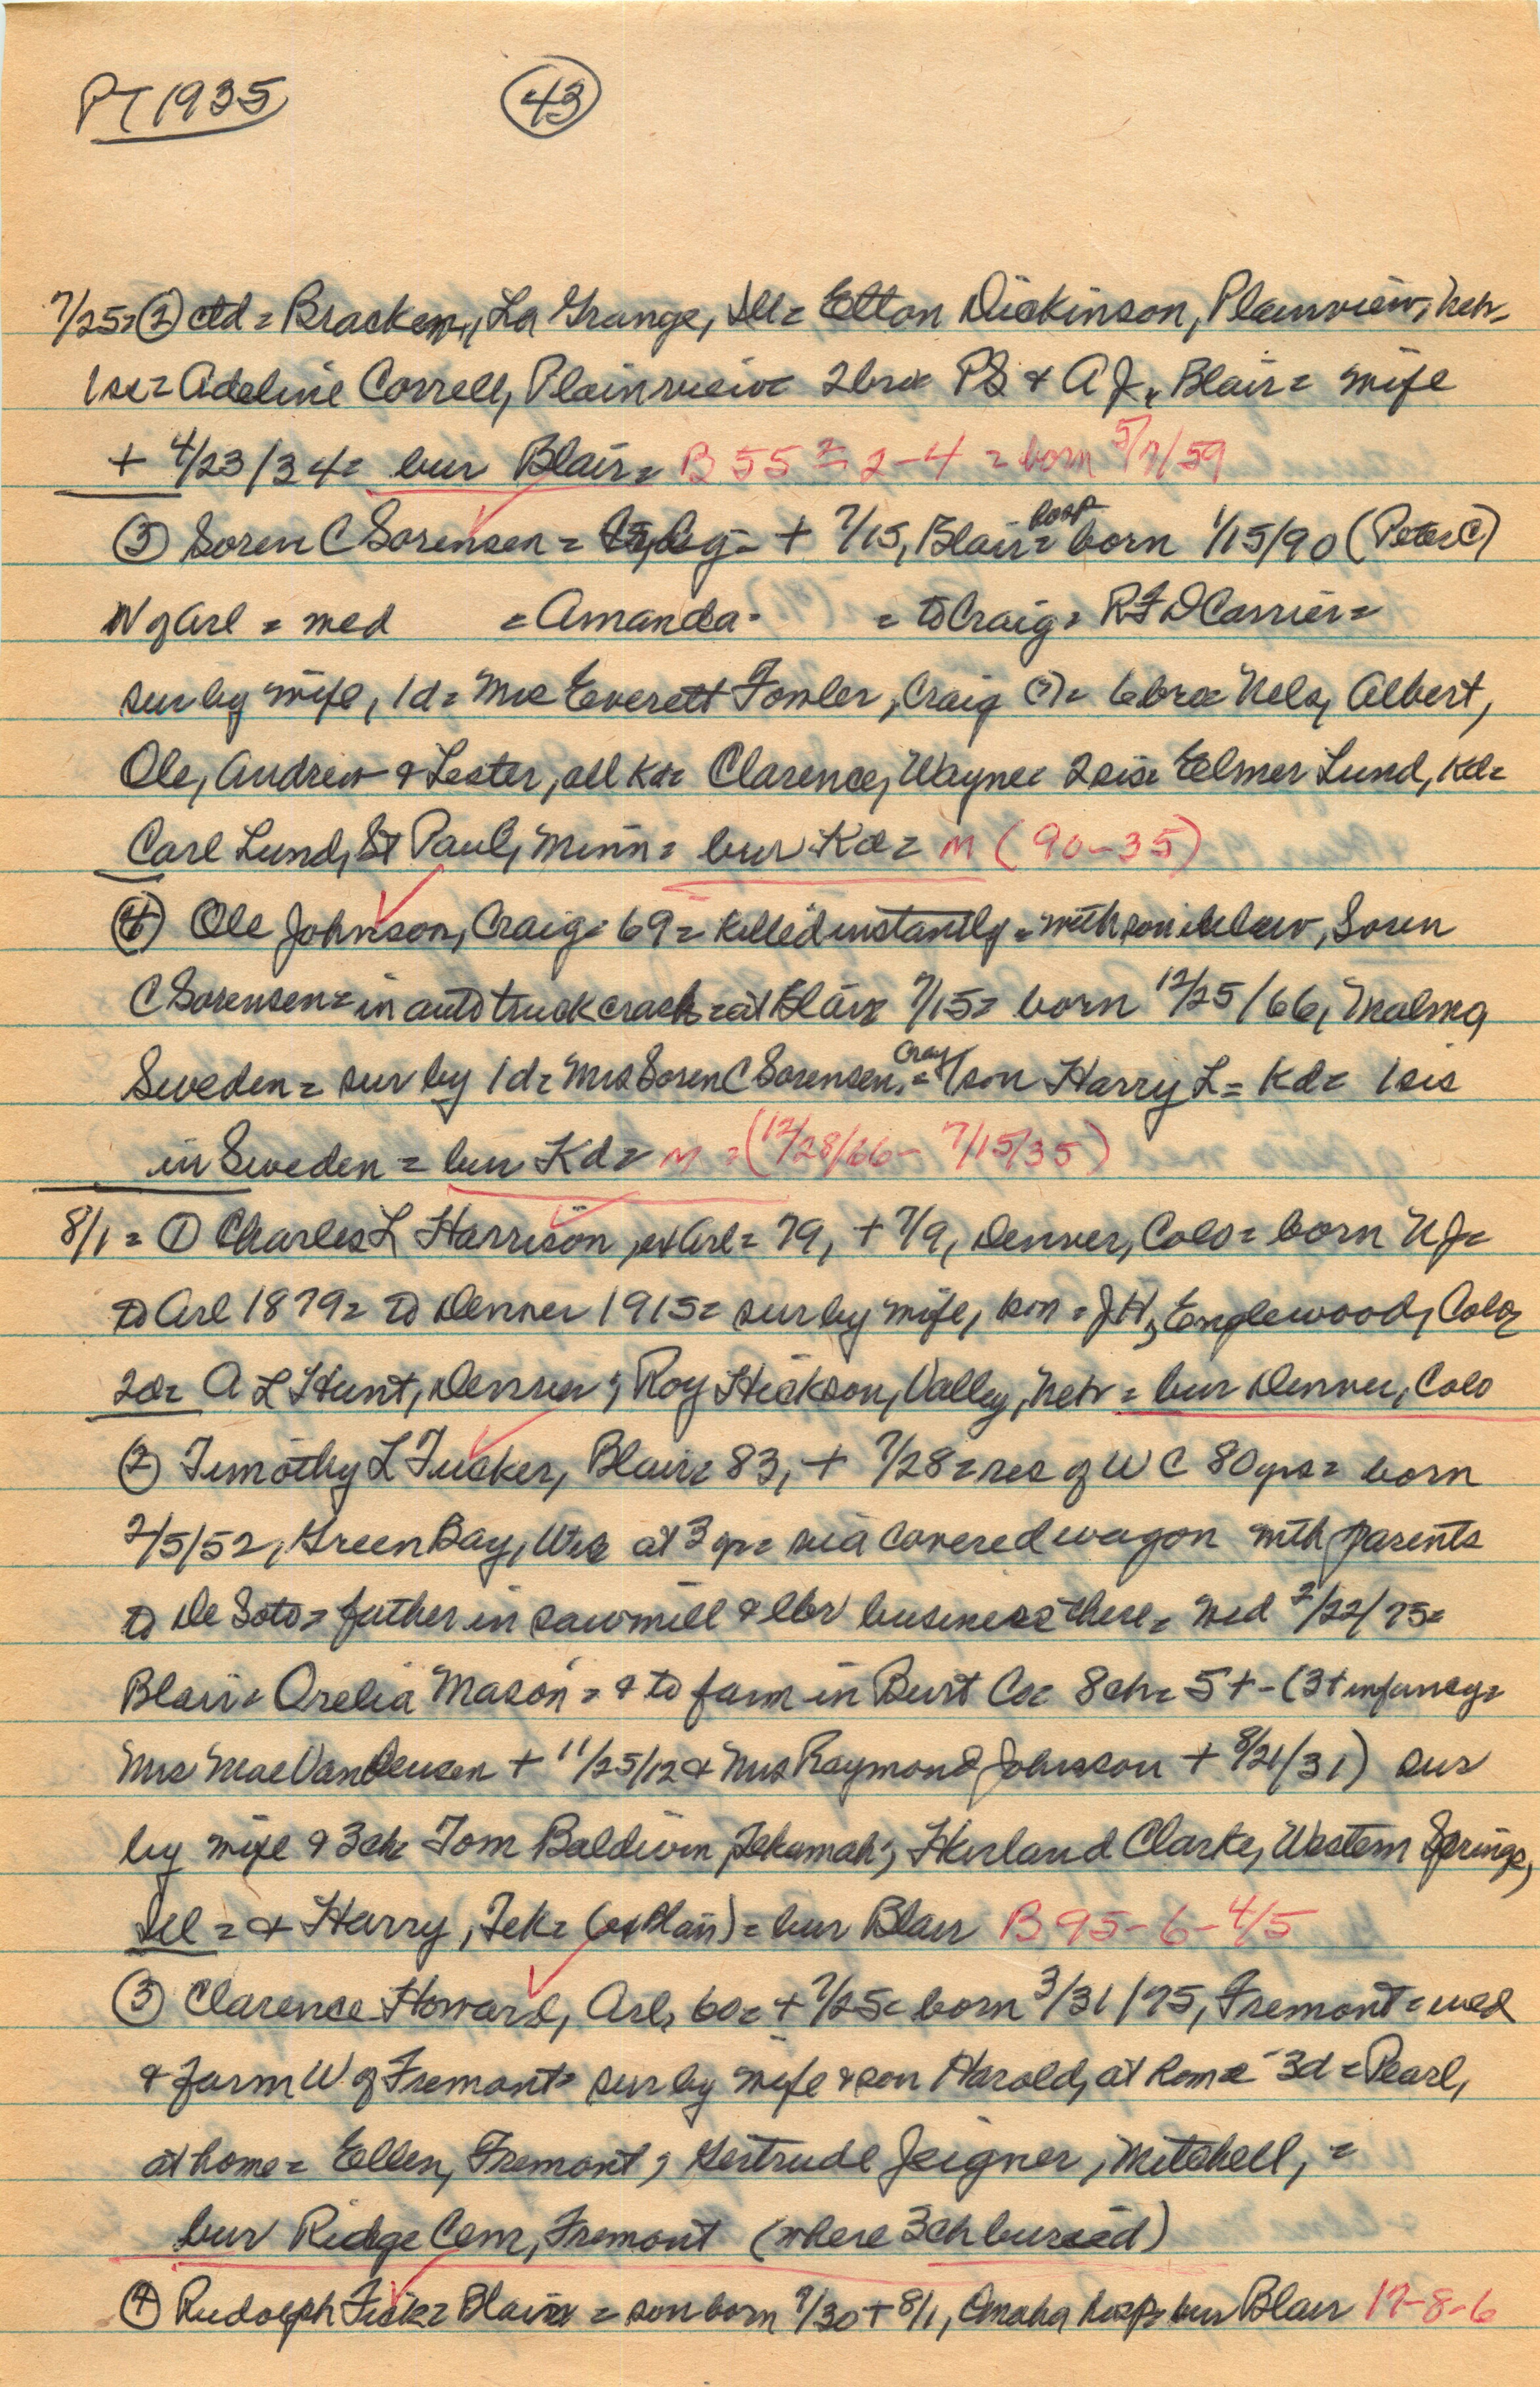 PT 1935 43
7/25 = (2) ctd = Bracken, La Grange, Ill = Elton Dickinson, Plainview, Neb =
1 sis = Adeline Correll, Plainview = 2 bro = PS & AJ, Blair = wife
+ 4/23/34 = bur Blair = B 55 = 2-4 = born 5/7/59
(3) Soren C Sorensen = Craig = + 7/15, Blair hosp = born 1/15/90 (Peter C)
W of Arl = med = Amanda - = to Craig = RFD Carrier =
sur by wife, 1 d = Mrs Everett Fowler, Craig (?) = 6 bro = Nels, Albert,
Ole, Andrew & Lester, all Kd = Clarence, Wayne = 2 sis = Elmer Lund, Kd =
Carl Lund, St Paul, Minn = bur Kd = M (90-35)
(4) Ole Johnson, Craig = 69 = killed instantly = with son in law, Soren
C Sorensen = in auto truck crash = at Blair 7/15 = born 12/25/66, Malmo
Sweden = sur by 1 d = Mrs Soren C Sorensen, Craig = 1 son Harry L = Kd = 1 sis
in Sweden = bur Kd = M = (12/28/66 - 7/15/35)
8/1 = (1) Charles L Harrison, ex Arl = 79, + 7/9, Denver, Colo = born NJ =
to Arl 1879 = to Denver 1915 = sur by wife, son = JH, Englewood, Colo
2d = A L Hunt, Denver; Roy Hickson, Valley, Neb = bur Denver, Colo
(2) Timothy L Tucker, Blair = 83, + 7/28 = res of W C 80 yrs = born
2/5/52, Green Bay, Wis at 3 yr = via covered wagon with parents
to De Soto = father in sawmill & lbr business there = med 2/22/75 =
Blair = Orelia Mason = & to farm in Burt Co = 8 ch = 5 + - (3 + infancy =
Mrs Mae VanDeusen + 11/25/12 & Mrs Raymond Johnson + 8/21/31) sur
by wife & 3 ch = Tom Baldwin, Tekamah; Herland Clarke, Western Springs,
Ill = & Harry, Tek = (ex Blair) = bur Blair B 95-6-4/5
(3) Clarence Howard, Arl, 60 = + 7/25 = born 3/31/75, Fremont = med
& farm W of Fremont = sur by wife & son Harold, at home = 3d = Pearl,
at home = Ellen, Fremont; Gertrude Jeigner, Mitchell, =
bur Ridge Cem, Fremont (where 3 ch buried)
(4) Rudolph Fick = Blair = son born 7/30 + 8/1, Omaha hosp = bur Blair 17-8-6